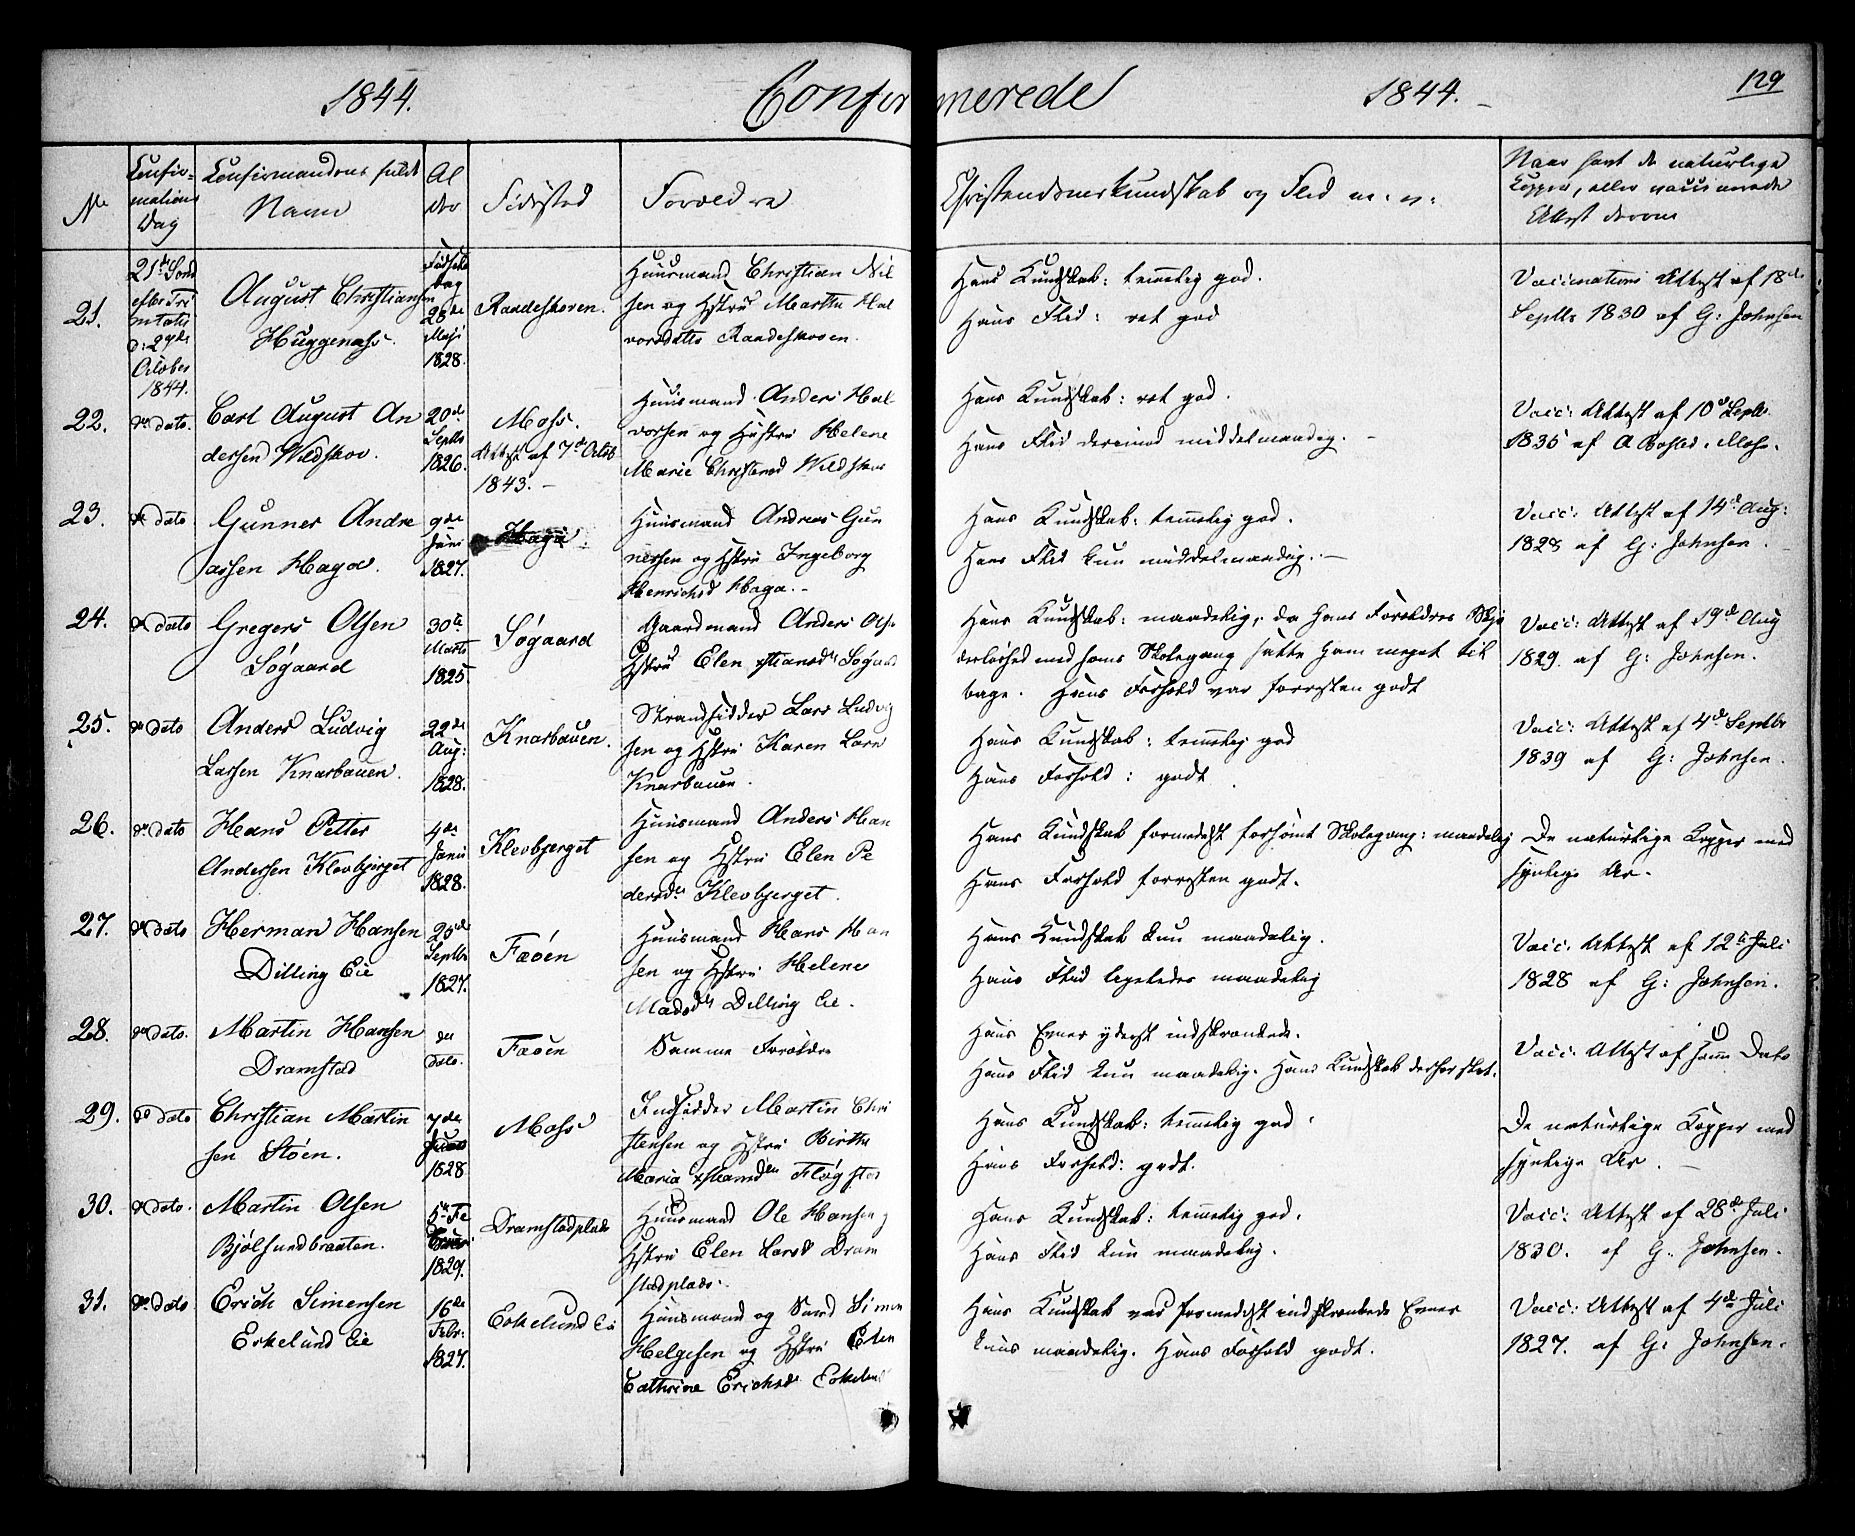 1844. Confirmerede 1844. 129
No
Confir-
mations
Dag
Confirmandens fulde
Navn
Al
der
Fødested
Forældre
Christendomskundskab og Flid m. v:
Naar havt de naturlige
Kopper, eller vaccinerede
Attest derom
21.
21de Sønd
efter Tri
nitatis
d: 27de
October
1844.
August Christiansen
Huggenæs.
Fødsels
dag
28de
Maji
1828.
Raadeskoven.
Huusmand Christian Nil
sen og Hstru Marthe Hal
vorsdatter Raadeskoven.
Hans Kundskab: temmelig god.
Hans Flid: ret god
Vaccinations Attest af 18de
Septbr 1830 af G: Johnsen
22.
do Dato.
Carl August An
dersen Wildskov.
20de
Septbr
1826.
Moss.
Attest af 7de Octob
1843. –
Huusmand Anders Hal
vorsen og Hustru Helene
Marie Christensd Wildskov
Hans Kundskab: ret god.
Hans Flid derimod middelmaadig. –
Vacc: Attest af 10d Septbr.
1835 af A Bohld. Moss.
23.
do Dato
Gunner Andre
assen Haga.
9de
Juni
1827.
Haga.
Huusmand Andreas Gun
nersen og Hstru Ingeborg
Henrichsd Haga. –
Hans Kundskab: temmelig god.
Hans Flid kun middelmaadig. –
Vacc: Attest af 14d Aug:
1828 af G: Johnsen.
24.
do Dato
Gregers Olsen
Søgaard
30te
Marts
1825.
Søgaard
Gaardmand Anders Ols
Hstru Elen Xstiansdr Søgaard
Hans Kundskab: maadelig, da hans Forældres Skjø
desløshed med hans Skolegang satte ham meget til
bage. Hans Forhold var forresten godt
Vacc: Attest af 19d Aug
1829. af G: Johnsen.
25.
do Dato
Anders Ludvig
Larsen Knarbauen.
22de
Aug:
1828.
Knarbauen.
Strandsidder Lars Ludvig
sen og Hstru Karen Lars
Knarbauen.
Hans Kundskab: temmelig god
Hans Forhold: godt.
Vacc: Attest af 4d Septbr
1839 af G: Johnsen.
26.
do Dato
Hans Petter
Andersen Klevbjerget
4de
Juni
1828.
Klevbjerget
Huusmand Anders Han
sen og Hstru Elen Pe
dersdr Klevbjerget.
Hans Kundskab formedelst forsømt Skolegang: maadelig
Hans Forhold forresten godt.
De naturlige Kopper med
synlige Ar.
27.
do Dato
Herman Hansen
Dilling Eie
25de
Septbr
1827.
Fæøen
Huusmand Hans Han
sen og Hstru Helene
Madsdr Dilling Eie.
Hans Kundskab kun maadelig.
Hans Flid ligeledes maadelig
Vacc: Attest af 12te Juli
1828 af G: Johnsen.
28.
do Dato.
Martin Hansen
Dramstad
do
Dato.
Fæøen
Samme Forældre
Hans Evner yderst indskrænkede.
Hans Flid kun maadelig. Hans Kundskab derfor slet.
Vacc: Attest af samme Dato
29.
do Dato
Christian Martin
sen Støen.
7de
1828
Moss
Indsidder Martin Chri
stensen og Hstru Birthe
Maria Xstiansdr Fløgstad
Hans Kundskab: temmelig god.
Hans Forhold: godt.
De naturlige Kopper med
synlige Ar. –
30.
do Dato.
Martin Olsen
Bjølsundbraaten.
5te Fe
bruar
1829.
Dramstadplads
Huusmand Ole Hansen og
Hstru Elen Larsd Dram
stadplads.
Hans Kundskab: temmelig god.
Hans Flid kun maadelig.
Vacc: Attest af 28de Juli
1830. af G. Johnsen.
31.
do Dato.
Erich Simensen
Eskelund Eie
16de
Febr:
1827.
Eskelund Eie
Huusmand og Smed Simen
Helgesen og Hstru Elen
Cathrine Erichsdr Eskelund
Hans Kundskab var formedelst indskrænkede Evner
kuns maadelig. Hans Forhold godt.
Vacc: Attest af 4de Juli
1827. af G: Johnsen.